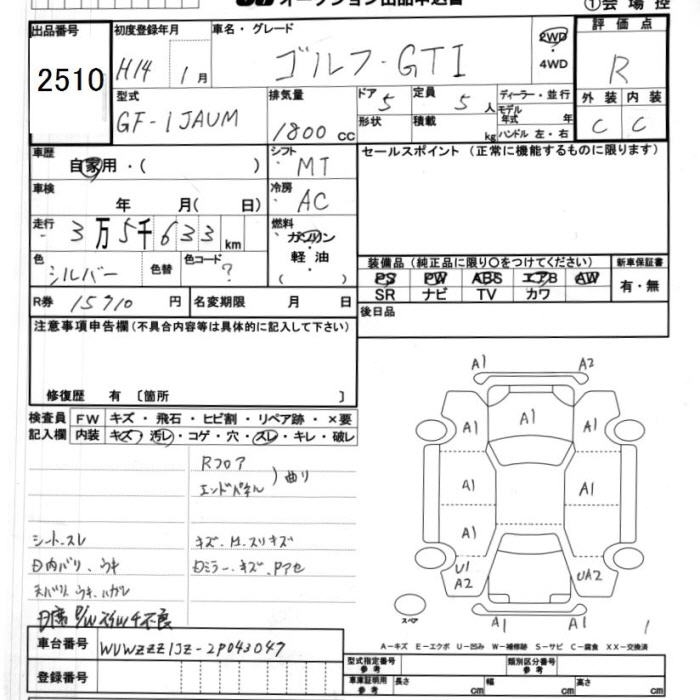 オークション出品申込書 ①会場控
出品番号 初度登録年月 車名・グレード 評価点
2510 H14 1月 ゴルフ・GTI 2WD・4WD R
型式 排気量 ドア 定員 ディーラー・並行 外装 内装
GF-1JAUM 1800cc 5 5人 モデル年式 年 C C
形状 積載 kg ハンドル 左・右
車歴 シフト セールスポイント(正常に機能するものに限ります)
自家用・( ) MT
車検 冷房
年 月( 日) AC
走行 燃料
3万5千633km ガソリン・軽油・( )
色 色替 色コード 装備品(純正品に限り○をつけてください) 新車保証書
シルバー ? PS PW ABS エアB AW 有・無
SR ナビ TV カワ
R券 15910円 名変期限 月 日 後日品
注意事項申告欄(不具合内容等は具体的に記入して下さい)
修復歴 有 〔箇所 〕
検査員 FW キズ・飛石・ヒビ割・リペア跡・×要
記入欄 内装 キズ・汚レ・コゲ・穴・スレ・キレ・破レ
Rフロア
エンドパネル 曲り
シートスレ
キズ・
ミラー・キズ・
不良
A1 A2
A1 A1 A1
A1 A1
A1 A1
U1 A2 UA2
A1 A2
スペア
1
A-キズ E-エクボ U-凹み W-補修跡 S-サビ C-腐食 XX-交換済
車台番号 WVWZZZ1JZ-2P043047
登録番号
型式指定番号 参考 類別区分番号 参考
車庫証明用 参考 長さ cm 幅 cm 高さ cm